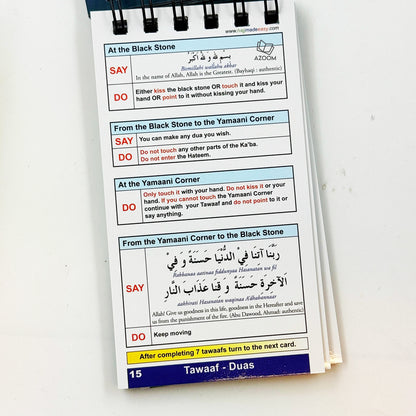 www.hajjmadeeasy.com
At the Black Stone
بِسْمِ اللهِ وَ اللهُ اَكْبَرُ
AZOOM
SAY
Bismillahi wallahu akbar
In the name of Allah, Allah is the Greatest. (Bayhaqi : authentic)
DO
Either kiss the black stone OR touch it and kiss your
hand OR point to it without kissing your hand.
From the Black Stone to the Yamaani Corner
SAY
You can make any dua you wish.
DO
Do not touch any other parts of the Ka'ba.
Do not enter the Hateem.
At the Yamaani Corner
DO
Only touch it with your hand. Do not kiss it or your
hand. If you cannot touch the Yamaani Corner
continue with your Tawaaf and do not point to it or
say anything.
From the Yamaani Corner to the Black Stone
رَبَّنَا آتِنَا فِيْ الدُّنْيَا حَسَنَةً وَ فِيْ
Rabbanaa aatinaa fiddunyaa Hasanatan wa fil
SAY
الْآخِرَةِ حَسَنَةً وَ قِنَا عَذَابَ النَّارِ
aakhirati Hasanatan waqinaa
Allah! Give us goodness in this life, goodness in the Hereafter and save
us from the punishment of the fire. (Abu Dawood, Ahmad: authentic)
DO
Keep moving
After completing 7 tawaafs turn to the next card.
15 Tawaaf - Duas